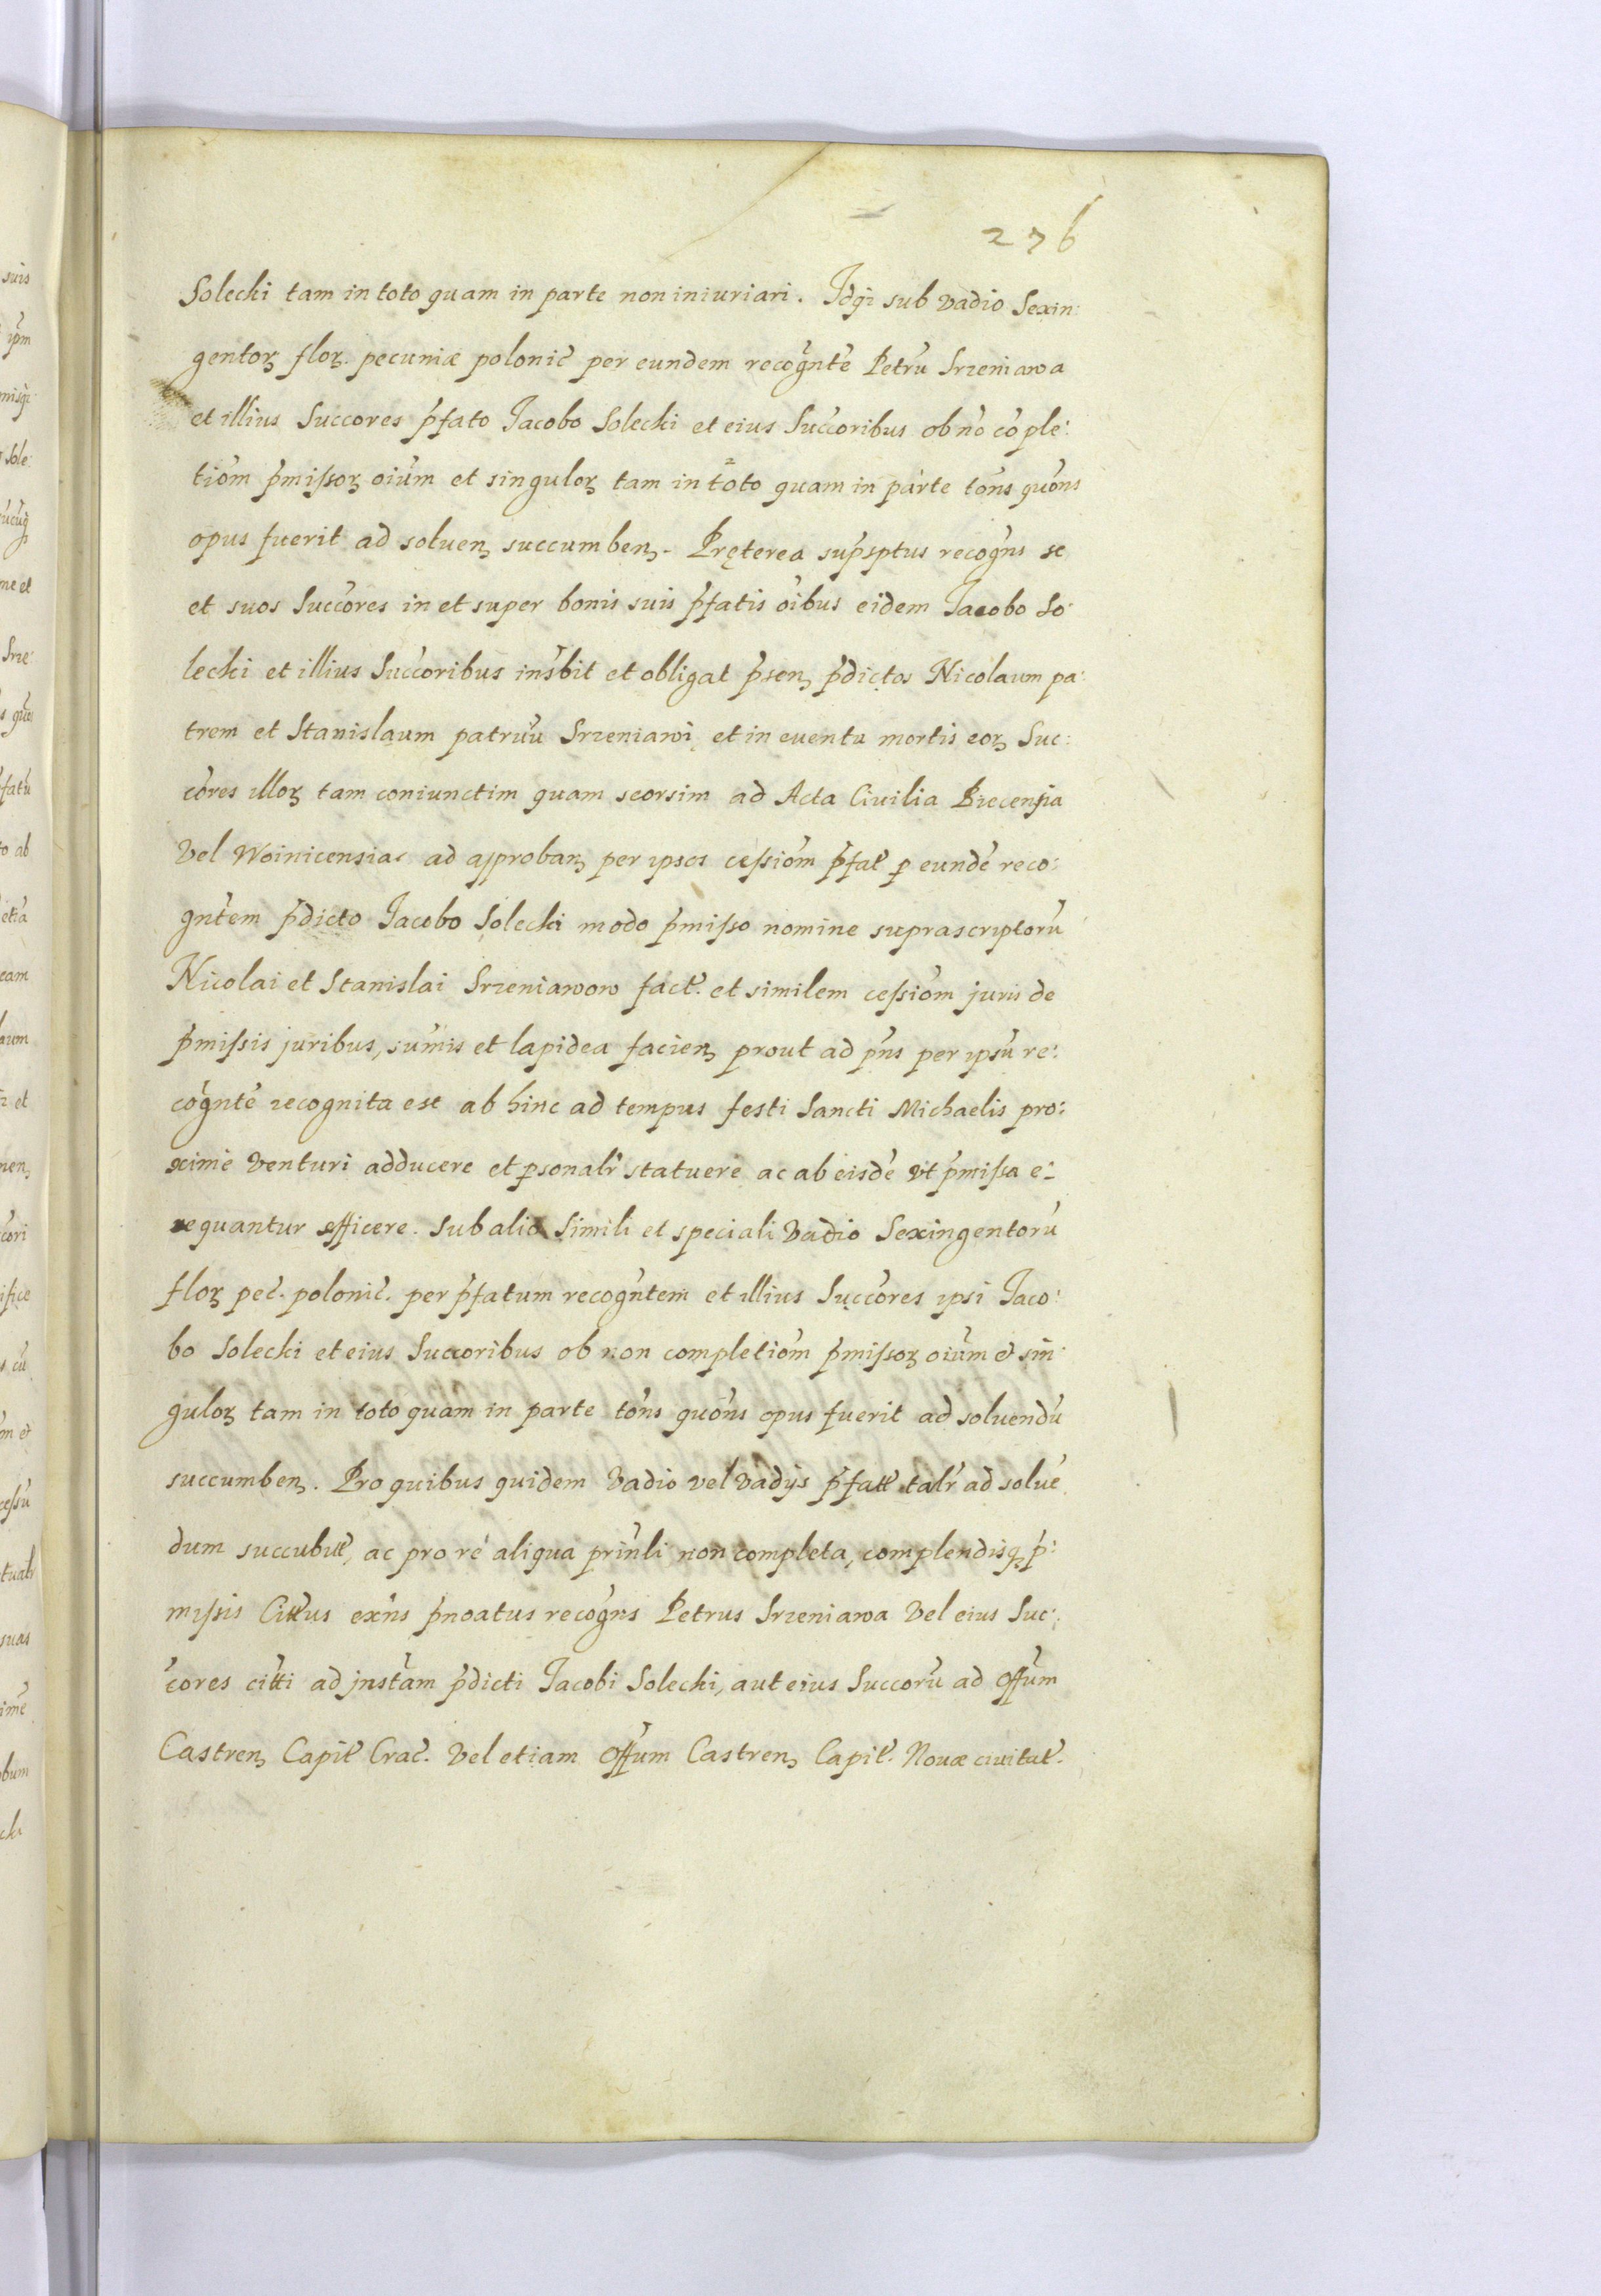 276
Solecki tam in toto quam in parte non iniuriari. Idq̃ sub vadio Sexin:
gentoꝝ floꝝ. pecuniæ polonic̃ per eundem recog̃ntẽ Petrũ Srzeniawa
et illius Succores p̃fato Jacobo Solecki et eius Succ̃oribus ob nõ cõple:
tiõm p̃missoꝝ oiũm et singuloꝝ tam in toto quam in parte tõns quõns
opus fuerit ad soluenꝫ succumbenꝫ. Pręterea sup̃sptus recog̃ns se
et suos Succ̃ores in et super bonis suis p̃fatis oĩbus eidem Jacobo So:
lecki et illius Succ̃oribus ins̃bit et obligat p̃senꝫ p̃dictos Nicolaum pa:
trem et Stanislaum patruũ Srzeniawi et in euentu mortis eoꝝ Suc:
cõres illoꝝ tam coniunctim quam seorsim ad Acta Ciuilia Biecensia
Vel Woinicensia ad approbanꝫ per ipsos cessiõm p̃fat̃ ꝑ eundẽ reco:
gñtem p̃dicto Jacobo Solecki modo p̃misso nomine suprascriptorũ
Nicolai et Stanislai Srzeniawow fact̃. et similem cessiõm juris de
p̃missis juribus, sum̃is et lapidea facienꝫ prout ad p̃ns per ipsũ re:
cog̃ntẽ recognita est ab hinc ad tempus festi Sancti Michaelis pro:
xime Venturi adducere et ꝑsonalr̃ statuere ac ab eisdẽ vt p̃missa e:
xequantur efficere. Sub alio Simili et speciali Vadio Sexingentorũ
floꝝ pec̃. polonic̃. per p̃fatum recog̃ntem et illius Succ̃ores ipsi Jaco:
bo Solecki et eius Succoribus ob non completiõm p̃missoꝝ oiũm et sin:
guloꝝ tam in toto quam in parte tõns quõns opus fuerit ad soluendũ
succumbenꝫ. Pro quibus quidem Vadio vel Vadijs p̃fatt̃ talr̃ ad soluẽ
dum succubitt̃, ac pro re aliqua prinl̃i non completa, complendisqꝫ p̃:
missis Citt̃us ex̃ns p̃noatus recog̃ns Petrus Srzeniawa Vel eius Suc:
c̃ores citt̃i ad jnst̃am p̃dicti Jacobi Solecki, aut eius Succorũ ad Off̃um
Castrenꝫ Capit̃ Crac̃. Vel etiam Off̃um Castrenꝫ Capit̃. Nouæ ciuitat̃.